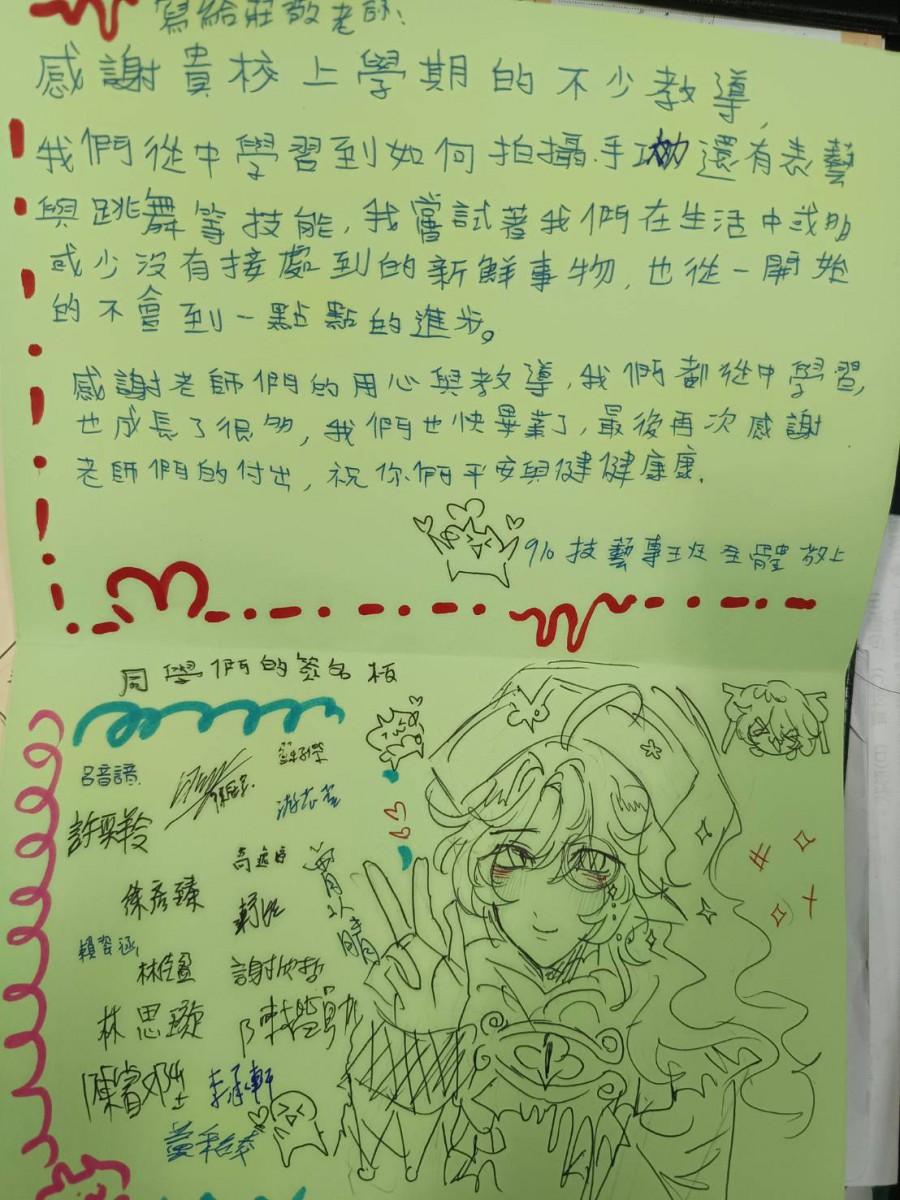 寫給莊敬老師:
感謝貴校上學期的不少教導,
我們從中學習到如何拍攝.手功還有表藝
與跳舞等技能,我嘗試著我們在生活中或多
或少沒有接處到的新鮮事物,也從一開始
的不會到一點點的進步。
感謝老師們的用心與教導,我們都從中學習,
也成長了很多,我們也快畢業了,最後再次感謝
老師們的付出,祝你們平安與健健康康.
910技藝專班全體敬上
同學們的簽名板
呂音諳
許雯羚
徐彥臻
林佳盈
林思璇
李承軒